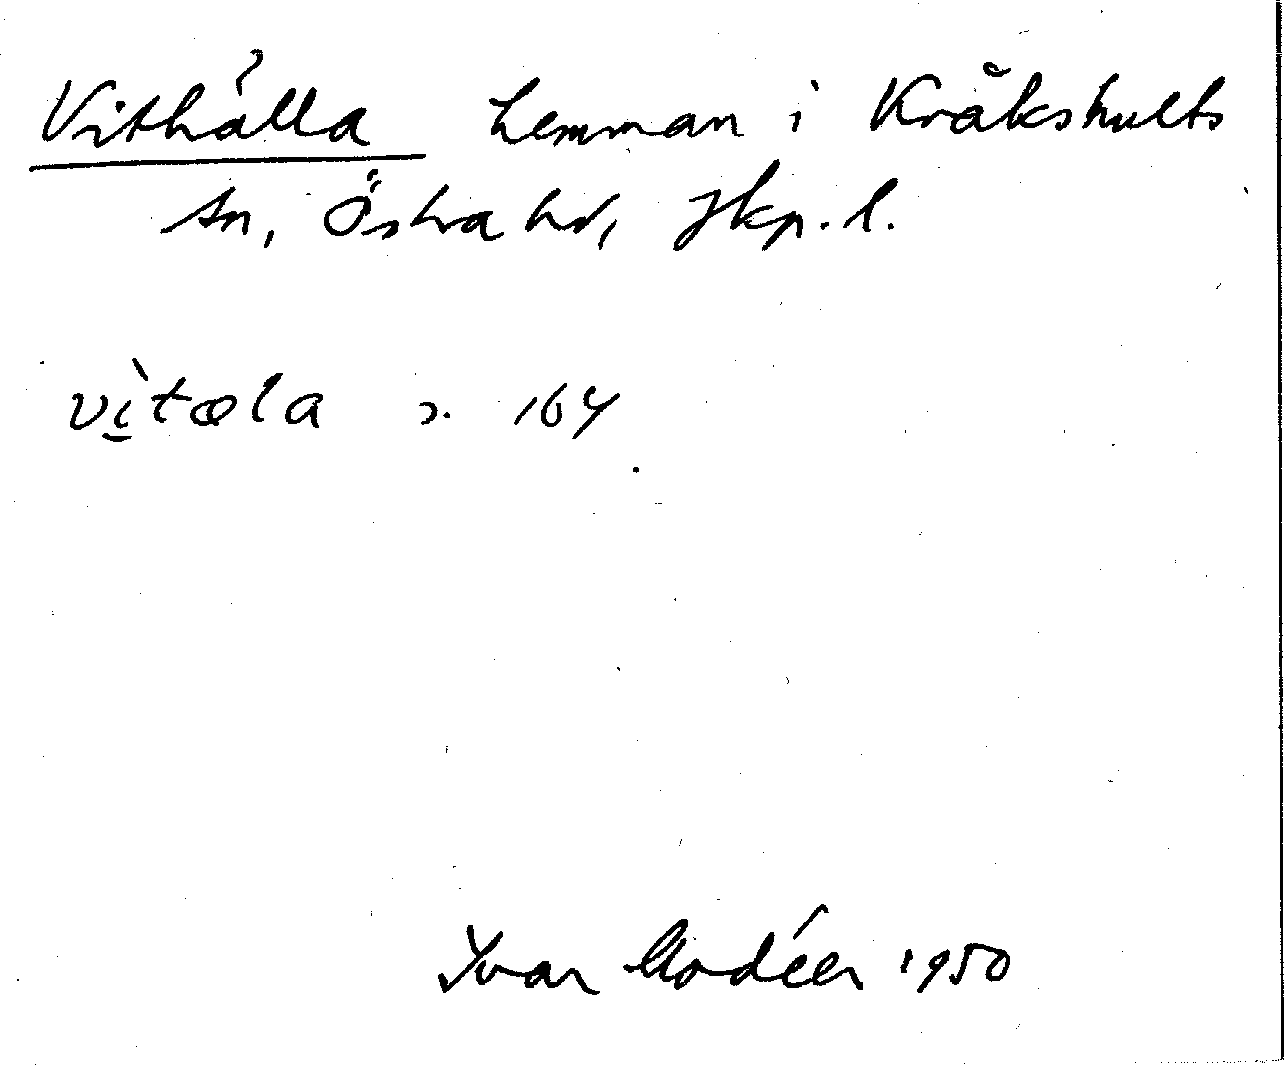 Vithälla hemman i Kråkshults
sn, Östra hd, Jkp. l.
vìtæla s. 164
Ivar Modéer 1950